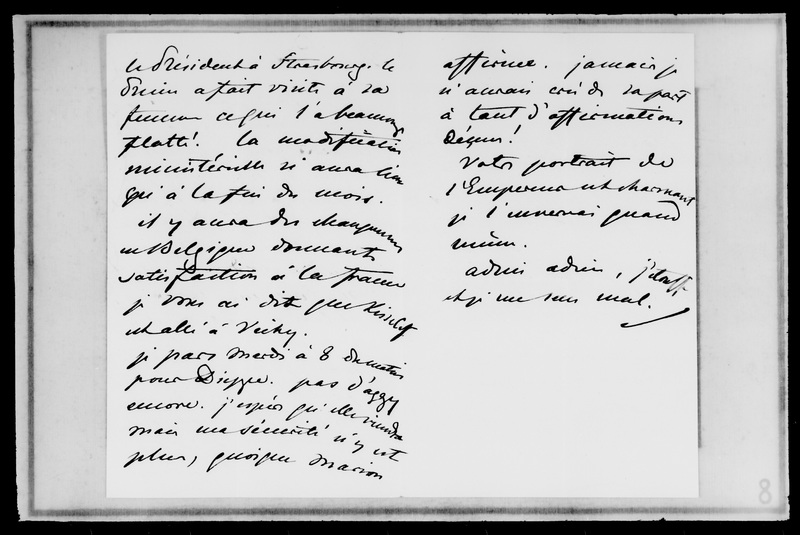 le Président à Strasbourg. le
Prince a fait visite à sa
femme ce qui l'a beaucoup
flatté. la modification
ministérielle n'aura lieu
qu'à la fin du mois.
il y aura des changements
en Belgique donnant
satisfaction à la france
je vous ai dit que Kisseleff
est allé à Vichy.
je pars mardi à 8 du matin
pour Dieppe. pas d'aggy
encore. j'espère qu'elle viendra
mais ma sécurité n'y est
plus, quoique Marion
affirme. jamais je
n'aurais cru de sa part
à tant d'affirmations
déçues!
Votre portrait de
l'Empereur est charmant
je l'enverrai quand
même.
adieu adieu, j'étouffe
et je me sens mal.
8